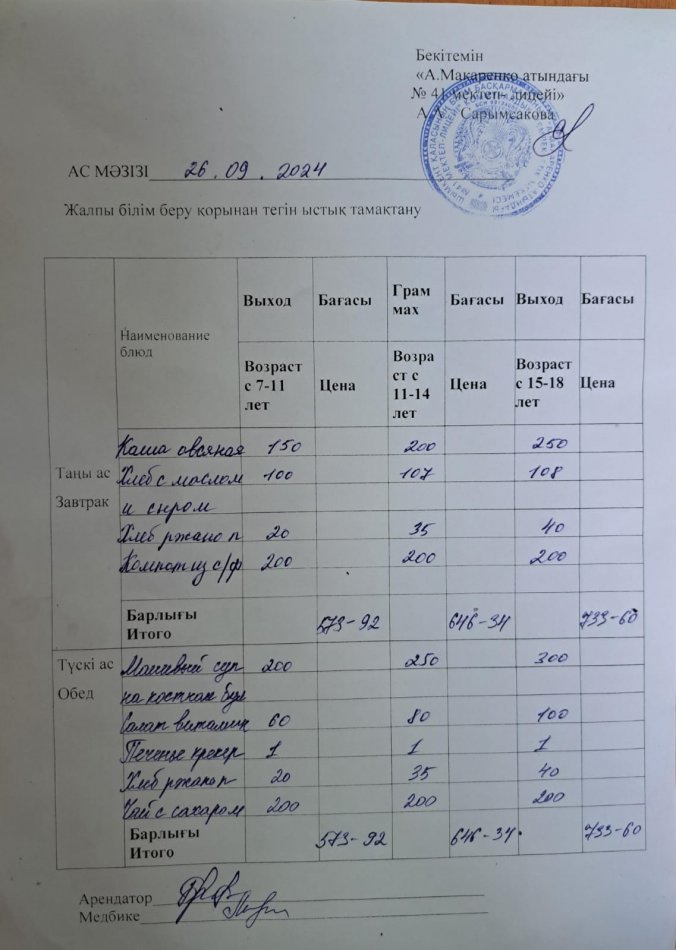 Бекітемін
«А.Макаренко атындағы
№ 41 мектеп- лицейі»
А.А. Сарымсакова
АС МӘЗІЗІ 26.09.2024
Жалпы білім беру қорынан тегін ыстық тамақтану
Наименование блюд Выход Бағасы Грам мах Бағасы Выход Бағасы
Возраст с 7-11 лет Цена Возра ст с 11-14 лет Цена Возраст с 15-18 лет Цена
Таңы ас
Завтрак
Каша овсяная 150 200 250
Хлеб с маслом 100 107 108
и сыром
Хлеб ржано п 20 35 40
Компот из с/ф 200 200 200
Барлығы
Итого 573-92 646-34 733-60
Түскі ас
Обед
Машевый суп 200 250 300
на костном бул
Салат витамин 60 80 100
Печенье крекер 1 1 1
Хлеб ржано п 20 35 40
Чай с сахаром 200 200 200
Барлығы
Итого 573-92 646-34 733-60
Арендатор
Медбике